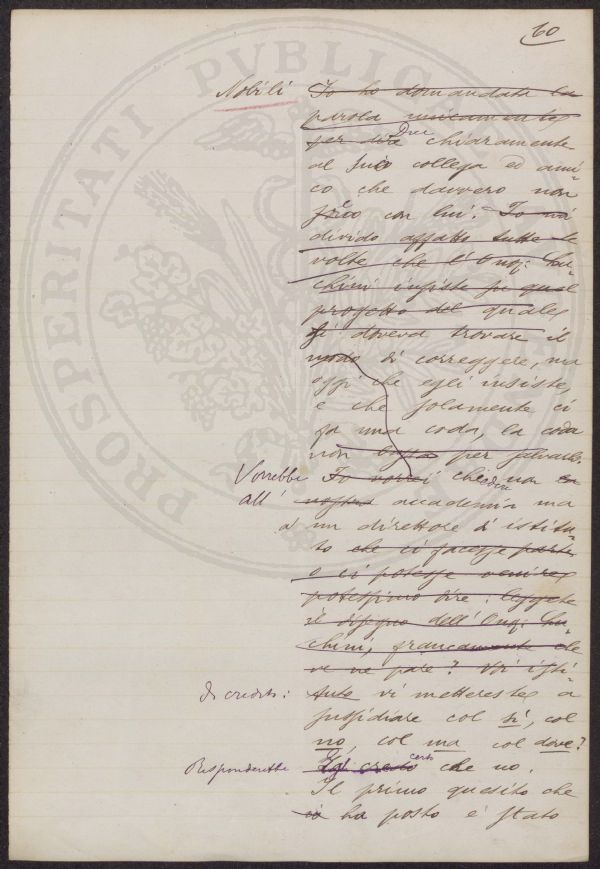 60
Nobili Io ho domandata la
parola unicamente
per dire Dice chiaramente
al suo collega ed ami-
co che davvero non
sono con lui. Io non
divido affatto tutte le
volte che l'Onor. Lu-
chini insiste su quel
progetto del quale
si doveva trovare il
modo di correggere, ma
oggi che egli insiste,
e che solamente ci
fa una coda, la coda
non basta per salvarlo.
Vorrebbe Io vorrei che non
all' nostra accademia ma
a un direttore di istitu-
to che ci facesse parte
o ci potesse venire
potessimo dire: leggete
il disegno dell'Onor. Lu-
chini, francamente che
ve ne pare? Voi isti-
di credito: tuto vi mettereste a
sussidiare col si, col
no, col ma col dove?
Risponderebbe Egli credo certo che no.
Il primo quesito che
ha posto è stato
PROSPERITATI PVBLICAE